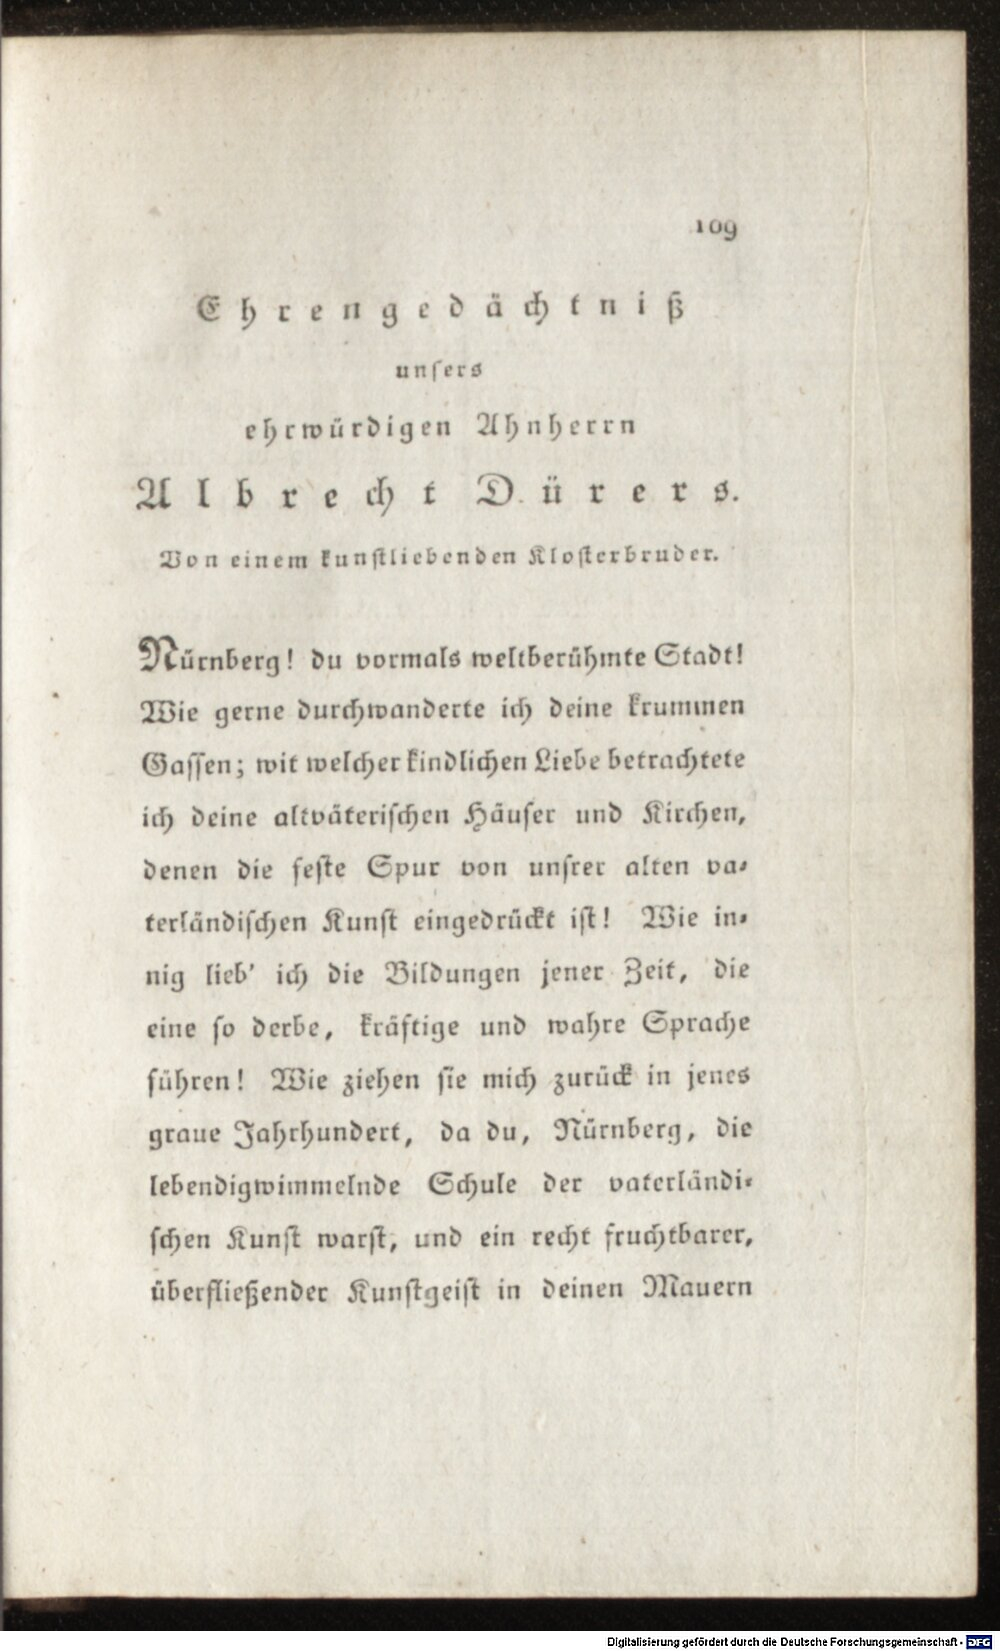 109
Ehrengedächtniß
unsers
ehrwürdigen Ahnherrn
Albrecht Dürers.
Von einem kunstliebenden Klosterbruder.
Nürnberg! du vormals weltberühmte Stadt!
Wie gerne durchwanderte ich deine krummen
Gassen; wit welcher kindlichen Liebe betrachtete
ich deine altväterischen Häuser und Kirchen,
denen die feste Spur von unsrer alten va⸗
terländischen Kunst eingedrückt ist! Wie in⸗
nig lieb' ich die Bildungen jener Zeit, die
eine so derbe, kräftige und wahre Sprache
führen! Wie ziehen sie mich zurück in jenes
graue Jahrhundert, da du, Nürnberg, die
lebendigwimmelnde Schule der vaterländi⸗
schen Kunst warst, und ein recht fruchtbarer,
überfließender Kunstgeist in deinen Mauern
Digitalisierung gefördert durch die Deutsche Forschungsgemeinschaft - DFG